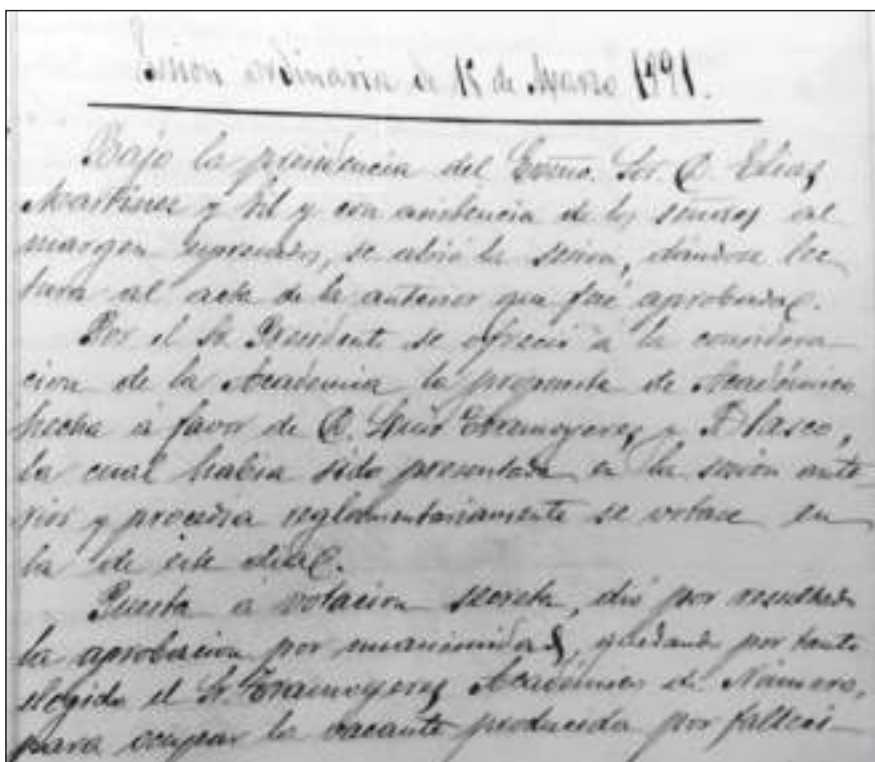 Sesion ordinaria de 15 de Marzo 1891.
Bajo la presidencia del Exmo. Sor. D. Elias
Martinez y Gil y con asistencia de los señores al
margen expresados, se abrió la sesion, dandose lec
tura al acta de la anterior que fué aprobada.
Por el Sr. President se ofreció á la considera
cion de la Academia la propuesta de Académico
hecha á favor de D. Luis Tramoyeres y Blasco,
la cual habia sido presentada en la sesión ante
rior y procedia reglamentariamente se votase en
la de este dia.
Puesta á votacion secreta, dió por resultado
la aprobacion por unanimidad, quedando por tanto
elegido el Sr. Tramoyeres Académico de Número,
para ocupar la vacante producida por falleci